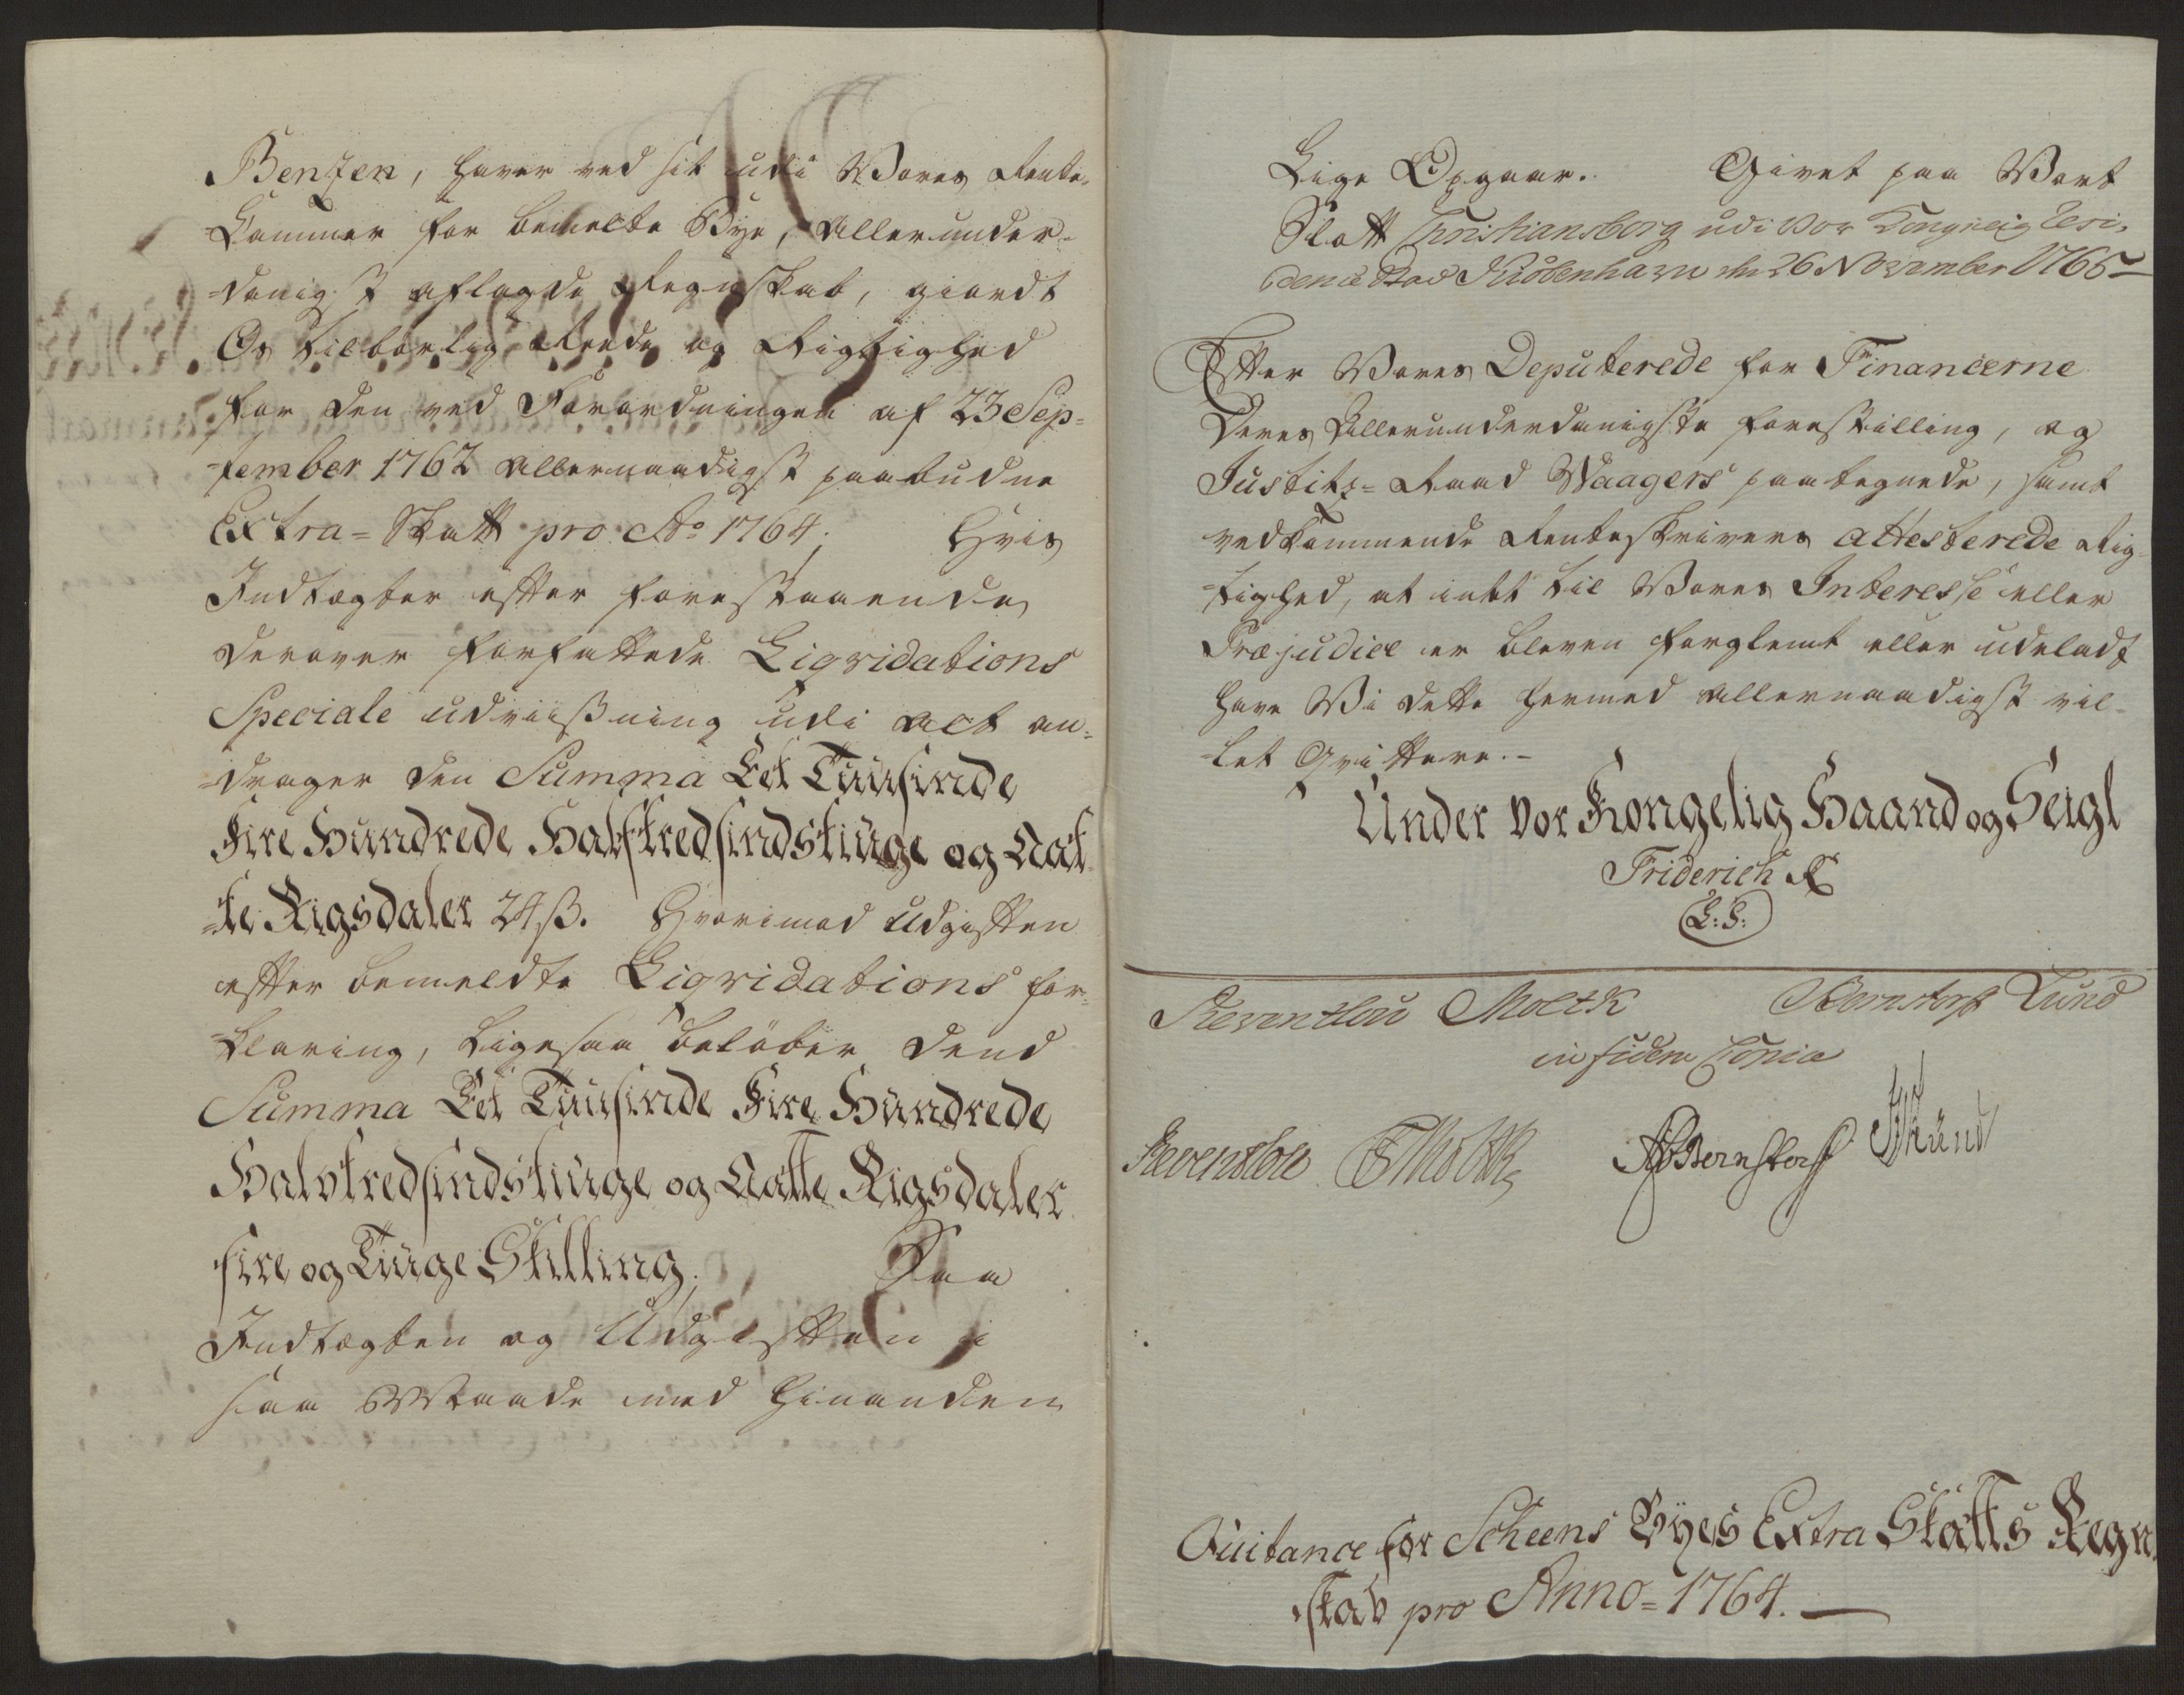 Benzen, haver ved sit udi Vores Rente-
Kammer for bemelte Bye, allerunder-
-danigst aflagde Regnskab, giordt
Os tilbørlig Rede og Rigtighed
for den ved Forordningen af 23 Sep-
-tember 1762 allernaadigst paabudne
Extra-Skatt pro Ao 1764; Hvis
Indtægter efter forestaaende
derover forfattede Liqvidations
Speciale udviisning udi alt an-
-drager den Summa Eet Tuusinde
Fire Hundrede Halvtredsindstiuge og Aat-
-te Rigsdaler 24 ß. Hvorimod Udgiften
efter bemeldte Liqvidations for-
-klaring, ligesaa beløber dend
Summa Eet Tuusinde Fire Hundrede
Halvtredsindstiuge og Aatte Rigsdaler
fire og Tiuge Skilling; Saa
Indtægten og Udgiften i
saa Maade imod hinanden
Lige Opgaar. Givet paa Vort
Slott Christiansborg udi Vor Kongelig Resi-
dence Stad Kiøbenhavn den 26 November 1765
Efter Vores Deputerede for Financerne
Deres Allerunderdanigste forestilling, og
Justitz-Raad Waagers paategnede, samt
vedkommende Renteskrivers attesterede Rig-
-tighed, at intet til Vores Interesse eller
Præjudice er bleven forglemt eller udeladt
have Vi dette hermed allernaadigst vil-
-let Qvittere.-
Under Vor Kongelig Haand og Seigl
Friderich R
L:S:
Reventlow Moltk Bernstorff Lund
in fidem Copiæ
Reventlow Moltke Bernstorff Lund
Quitance for Scheens Byes Extra Skatts Regn-
-skab pro Anno = 1764.